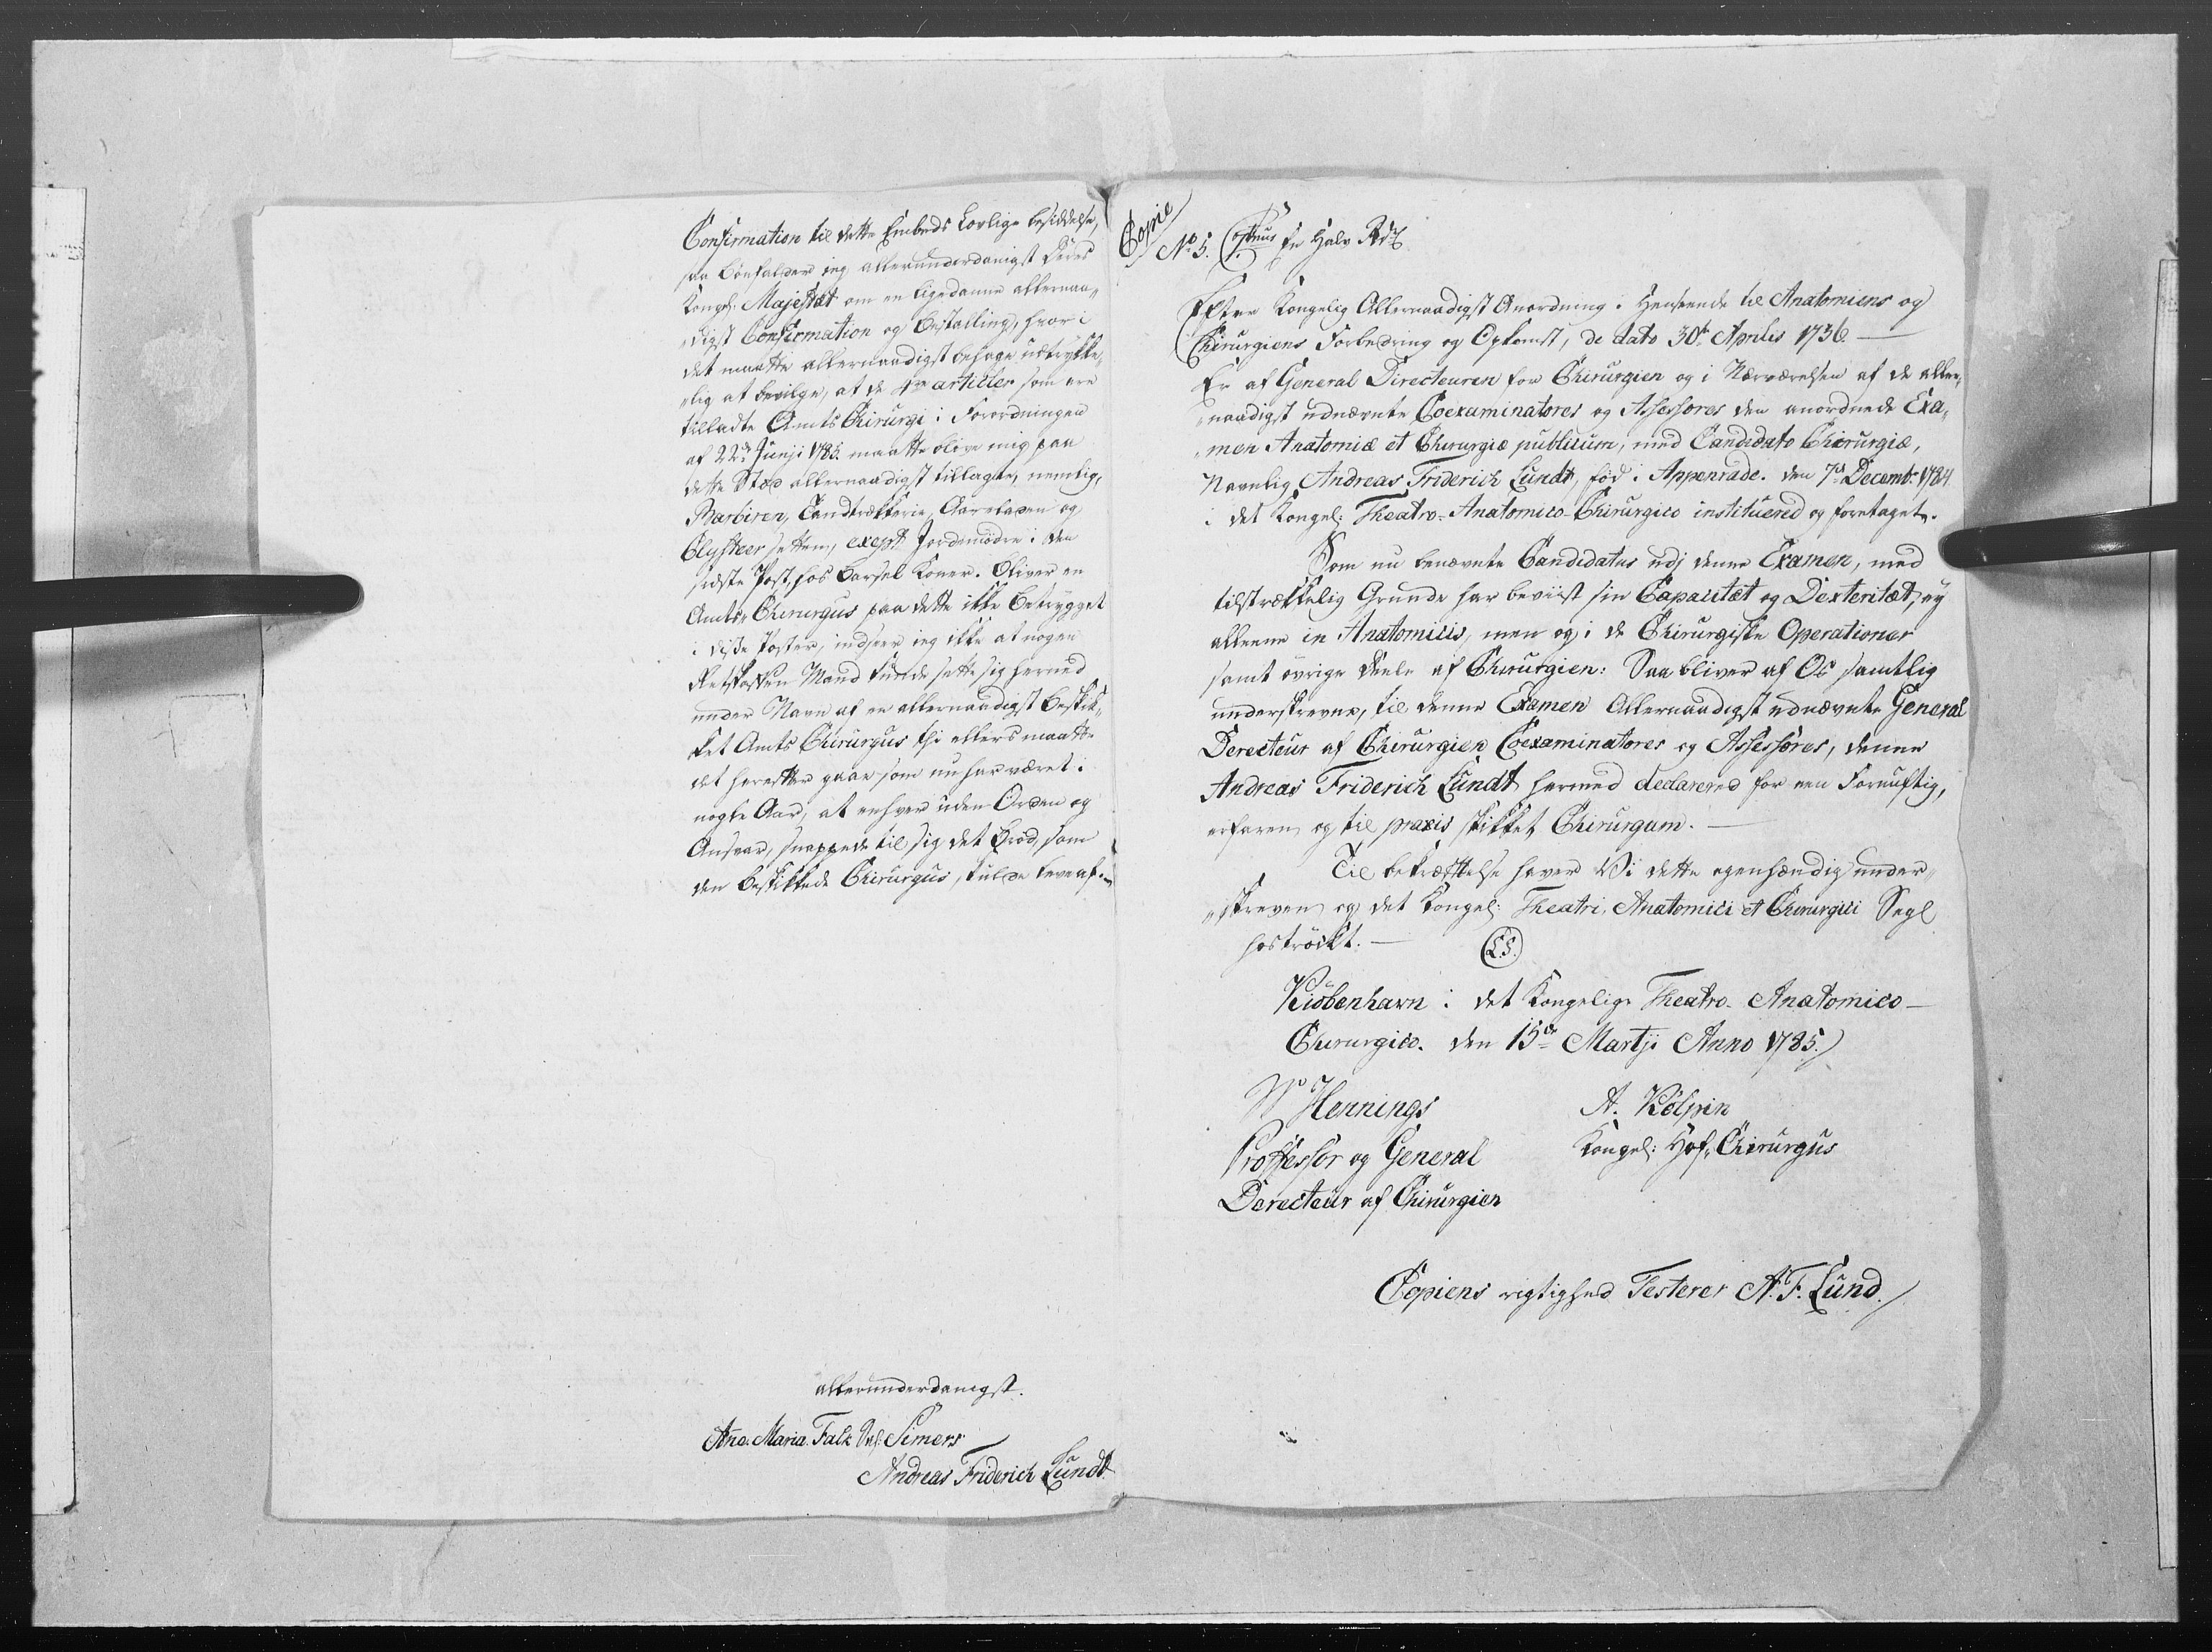 Confirmation til dette Embeds Lovlige besiddelse,
saa bönfalder ieg allerunderdanigst Deres
Kongel: Majestæt om en ligedanne allernaa„
„digst Confirmation og bestalling, hvor i
det maatte allernaadigst behage udtrykke„
„lig at bevilge, at de 4re articler som ere
tilladte Amts Chirurgi i Forordningen
af 22de Junji 1785. maatte blive mig paa
dette Sted allernaadigst tillagte, nemlig,
Barbiren, Tandtrækkerie, Aareladen og
Clysteer setten, exept Jordemödre i den
sidste Post, hos barsel koner. Bliver en
Amts-Chirurgus paa dette ikke betrygget
i disse Poster, indseer ieg ikke at nogen
Retskaffen Mand kunde sette sig herned
under Navn af en allernaadigst beskik„
ket Amts Chirurgus thi ellers maatte
det herefter gaae som nu har været i
nogle Aar, at enhver uden Orden og
Ansvar, snappede til sig det bröd, som
den beskikkede Chirurgus, skulde leve af.
allerunderdanigst.
Ane. Maria Falk Sal: Simers
Andreas Friderich Lundt
Copie
No 5. En Halv Rdl
Efter Kongelig Allernaadigst Anordning i Henseende til Anatomiens og
Chirurgiens Forbedring og Opkomst, de dato 30te Aprilis 1736
Er af General Directeuren for Chirurgien og i Nærværelsen af de aller„
„naadigst udnævnte Coexaminatores og Assessores den anordnede Exa„
„men Anatomiæ et Chirurgiæ publicum, med Candidato Chirurgiæ,
Navnlig Andreas Friderich Lundt, föd i Appenrade. den 7de Decemb: 1784
i det Kongel: Theatro-Anatomico-Chirurgico instituered og foretaget.
Som nu benævnte Candidatus udj denne Examen, med
tilstrækkelig Grunde har beviist sin Capacitæt og Dexteritæt, ey
alleene in Anatomicis, men og i de Chirurgiske Operationer
samt övrige deele af Chirurgien: Saa bliver af Os samtlig
underskrevne, til denne Examen Allernaadigst udnævnte General
Derecteur af Chirurgien Coexaminatores og Assessores, denne
Andreas Friderich Lundt hermed declarered for een Fornuftig,
erfaren og til praxis skikket Chirurgum.
Til bekræftelse haver Vi dette egenhændig under„
„skreven og det Kongel: Theatri, Anatomici et Chirurgici Segl
hoströkt.
L.S.
Kiöbenhavn i det Kongelige Theatro-Anatomico-
Chirurgico. den 15de Martji Anno 1785.
W Hennings
Proffessor og General
Derecteur af Chirurgien
A. Kölpin
Kongel: Hof-Chirurgus
Copiens rigtighed Testerer A. F. Lund.